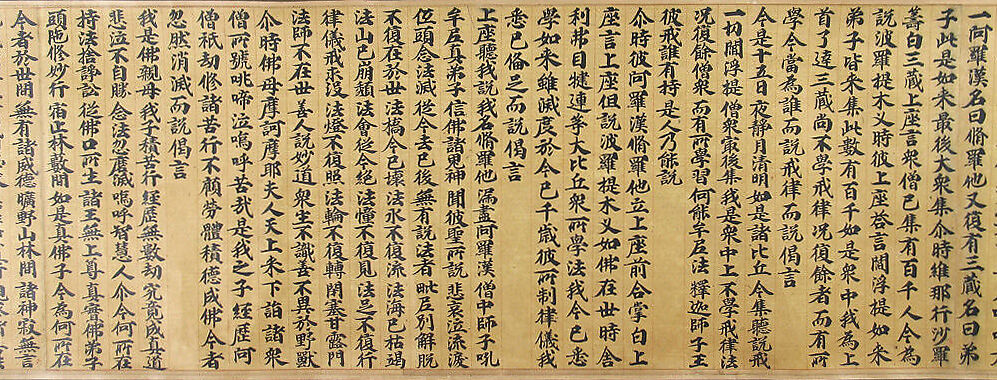 一阿羅漢名曰脩羅他又復有三藏名曰弟
子此是如来最後大衆集尒時維那行沙羅
籌白三藏上座言衆僧已集有百千人今為
說波羅提木义時彼上座荅言閻浮提如来
弟子皆来集此數有百千如是衆中我為上
首了達三藏尚不學戒律况復餘者而有所
學今當為誰而說戒律而說偈言
今是十五日 夜静月清明 如是諸比丘 今集聽說戒
一切閻浮提 僧衆冣後集 我是衆中上 不學戒律法
况復餘僧衆 而有所學習 何能牟尼法 釋迦師子王
彼戒誰有持 是人乃能說
尒時彼阿羅漢脩羅他立上座前合掌白上
座言上座但說波羅提木义如佛在世時舍
利弗目揵連等大比丘衆所學法我今已悉
學如来雖滅度於今已千歲彼所制律儀我
悉已俻足而說偈言
上座聽我說 我名脩羅他 漏盡阿羅漢 僧中師子吼
牟尼真弟子 信佛諸鬼神 聞彼聖所說 悲哀泣流淚
位頭念法滅 從今去已後 無有說法者 毗尼別解脫
不復在於世 法橋今已壞 法水不復流 法海已枯竭
法山已崩頹 法會從今絕 法幢不復見 法足不復行
律儀戒永没 法燈不復照 法輪不復轉 閉塞甘露門
法師不在世 善人說妙道 衆生不識善 不異於野獸
尒時佛母摩訶摩耶夫人天上来下詣諸衆
僧所號咷啼泣嗚呼苦哉是我之子經歷阿
僧祇劫修諸苦行不顧勞體積德成佛今者
忽然消滅而說偈言
我是佛親母 我子積苦行 經歷無數劫 究竟成真道
悲泣不自勝 念法忽磨滅 嗚呼智慧人 尒今何所在
持法捨諍訟 從佛口所生 諸王無上尊 真實佛弟子
頭陁修妙行 宿止林藪間 如是真佛子 今為何所在
今者於世間 無有諸威德 曠野山林間 諸神寂無言